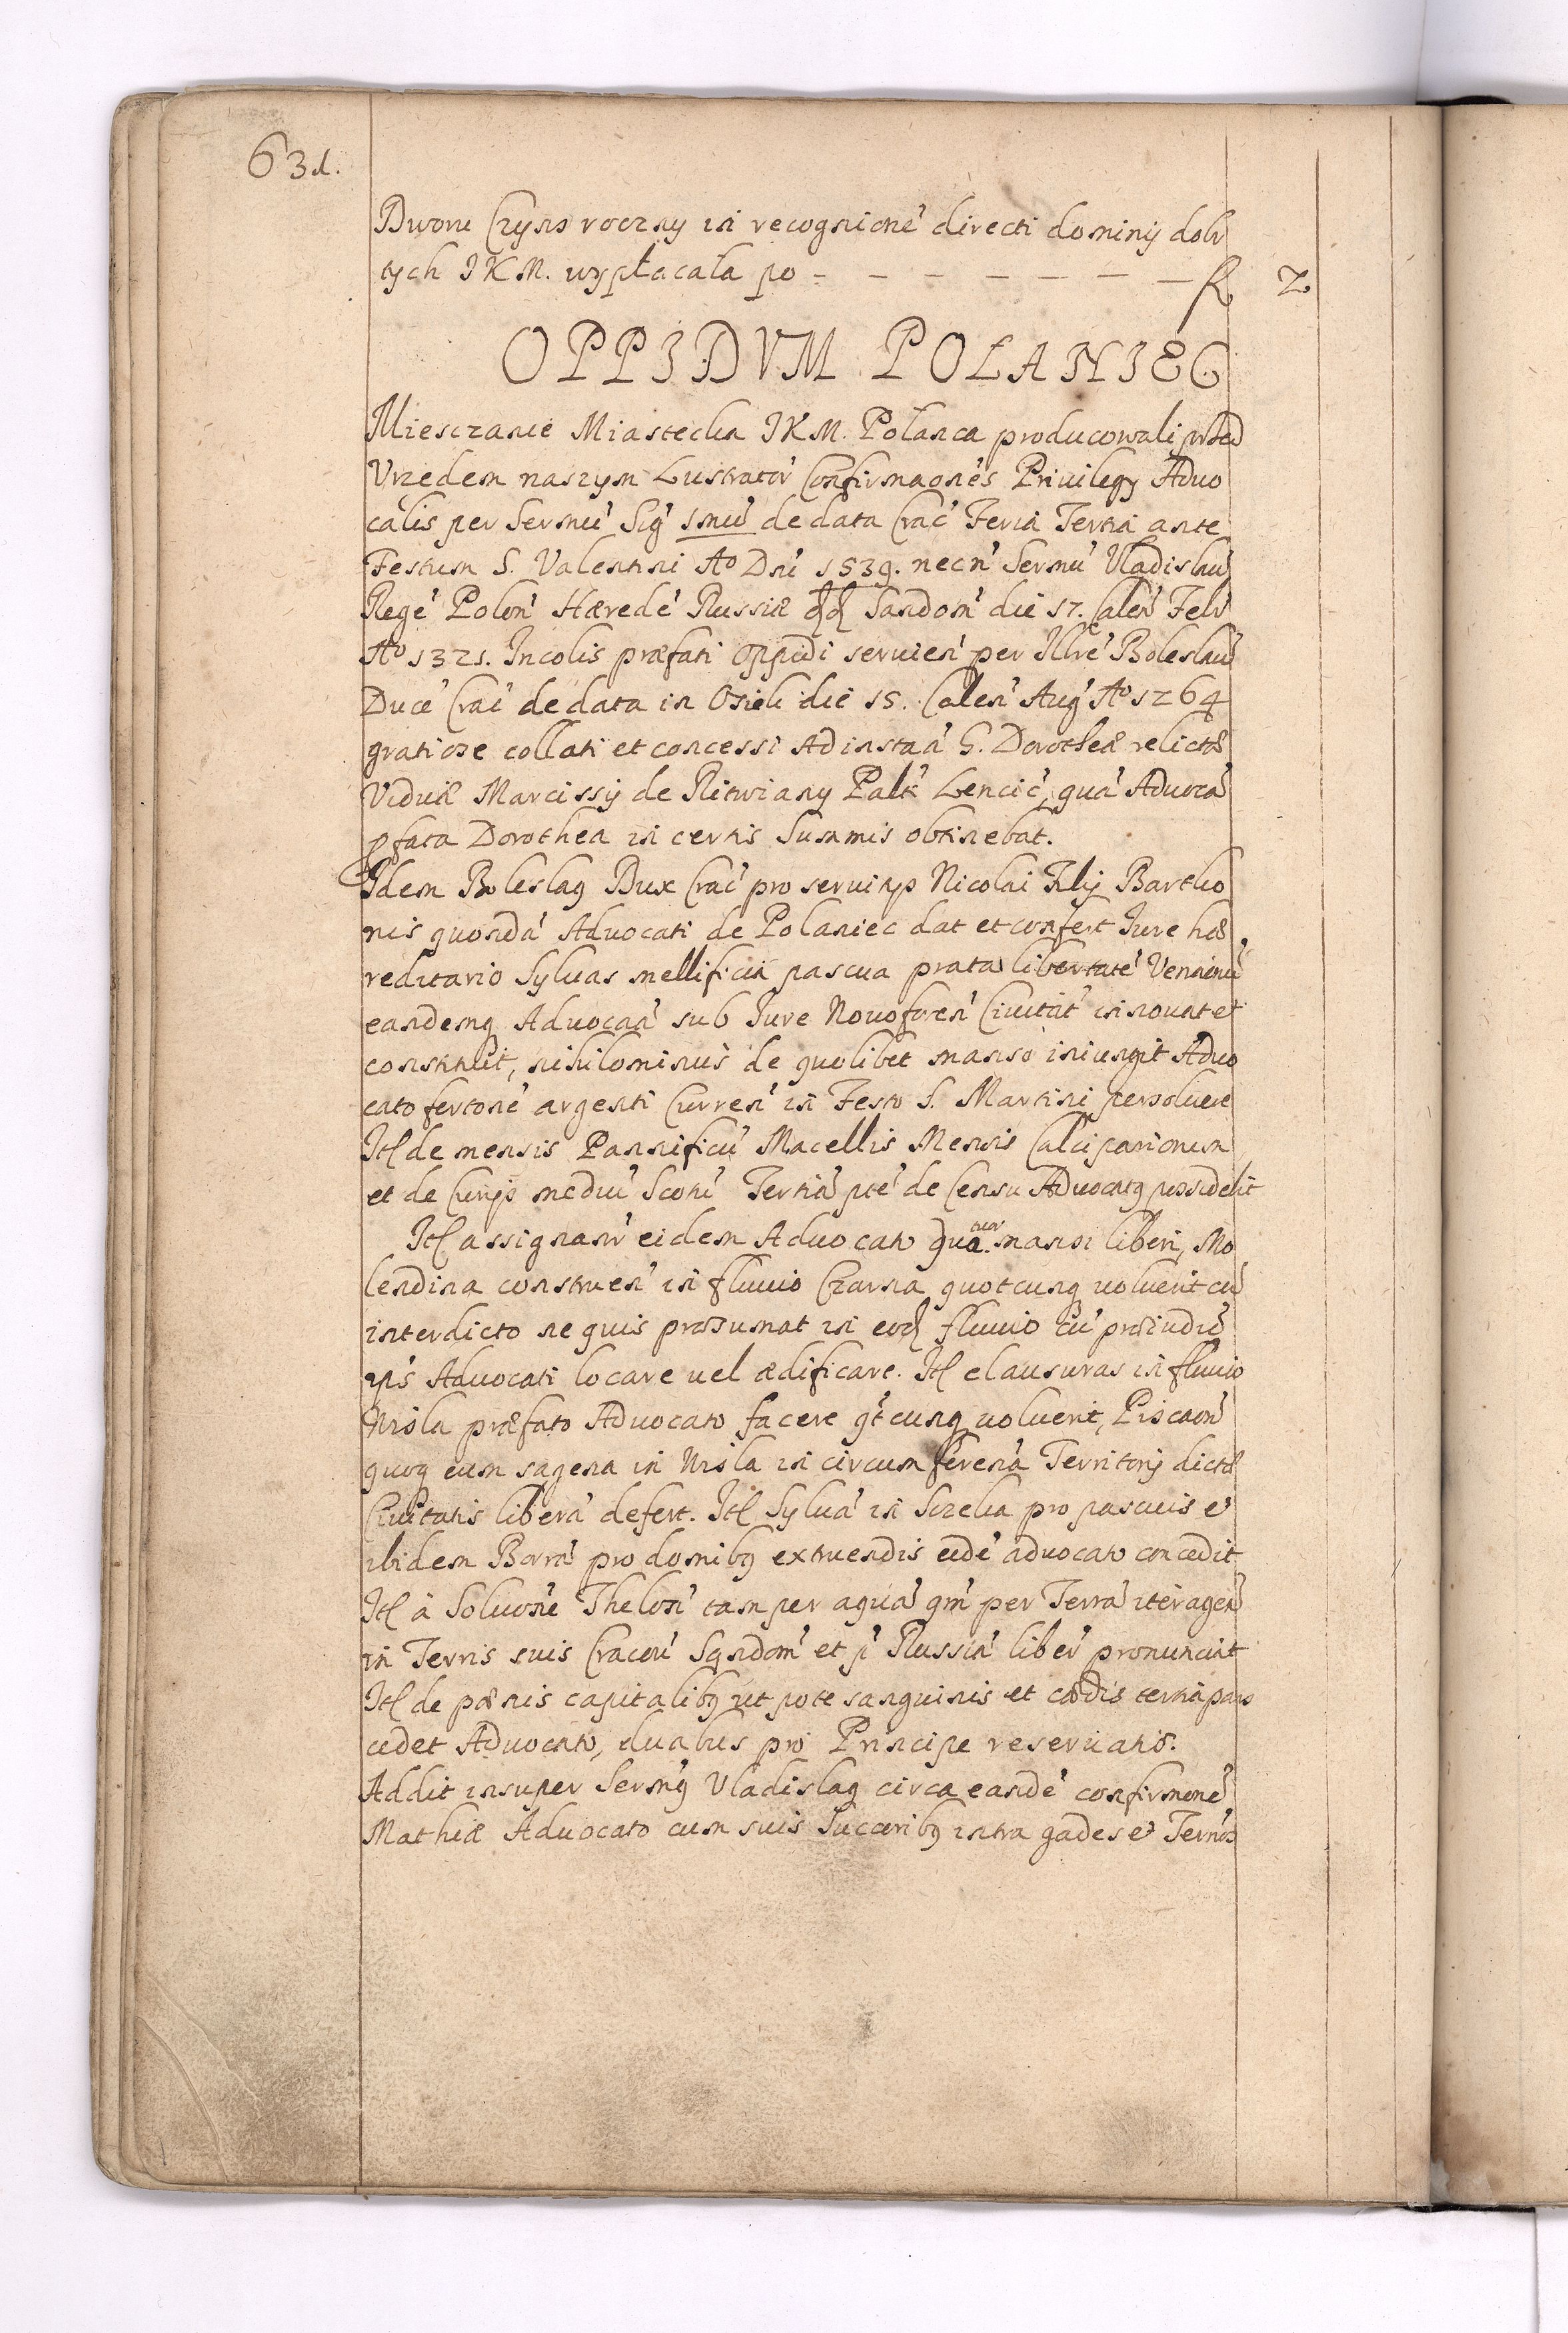 631.
Dworu Czynsz roczny in recognitionē directi dominij dobr
tych JKM. wypłacała po - - - - - - - fl 2
OPPIDVM POLANIEC
Miesczanie Miasteczka JKM. Polanca producowali przed
Vrzedem naszym Lustrator Confirmaones Priuilegy Aduo
calis per Sermū Sig 1mū de data Crac Feria Tertia ante
Festum S. Valentini Ao Dni 1539. necn Sermū Vladislaū
Regē Polon Hæredē Russiæ Sandom die 17. Calen Febr
Ao 1321. Incolis præfati Oppidi seruien per Illrē Boleslaū
Ducē Crac de data in Osiek die 15. Calen Aug Ao 1264
gratiose collati et concessi Ad instan G. Dorotheæ relictæ
Viduæ Marcissij de Ritwiany Palt Lencic, quā Aduocā
pfata Dorothea in certis Summis obtinebat.
Idem Boleslaq Dux Crac pro seruitijs Nicolai Filij Bartho
nis quondā Aduocati de Polaniec dat et confert Iure hæ
reditario Syluas mellificia pascua prata libertatē Venaōnū
eandemq Aduocaā sub Iure Nouoforen Ciuitāt innouat et
constituit, nihilominus de quolibet manso iniungit Aduo
cato fertonē argenti Curren in Festo S. Martini persoluere
Itl de mensis Pannificū Macellis Mensis Calciparionum
et de Curijs mediū Scotū Tertiā ptē de Censu Aduocatq possidebit
Itl assignant eidem Aduocato quatuor mansi liberi, Mo
lendina construen in fluuio Czarna quotcunq voluerit cū
interdicto ne quis præsumat in eod fluuio cū præiudio
ips Aduocati locare uel ædificare. Itl clausuras in fluuio
Wisla præfato Aduocato facere qt cunq uoluerit, Piscaon
quoq cum sagena in Wisla in circumferenā Territorij dictæ
Ciuitatis liberā defert. Itl Syluā in Sczeka pro pascuis et
ibidem Borrā pro domibq extruendis eidē aduocato concedit
Itl à Soluone Thelon tam per aquā qm per Terrā iter agen
in Terris suis Cracou Sandom et p Russiā liber pronunciat
Itl de pænis capitalibq ut pote sanguinis et cædis tertia pars
cedet Aduocato, duabus pro Principe reseruatis.
Addit insuper Sermq Vladislaq circa eandē confirmonē
Mathiæ Aduocato cum suis Succoribq intra gades et Ternos